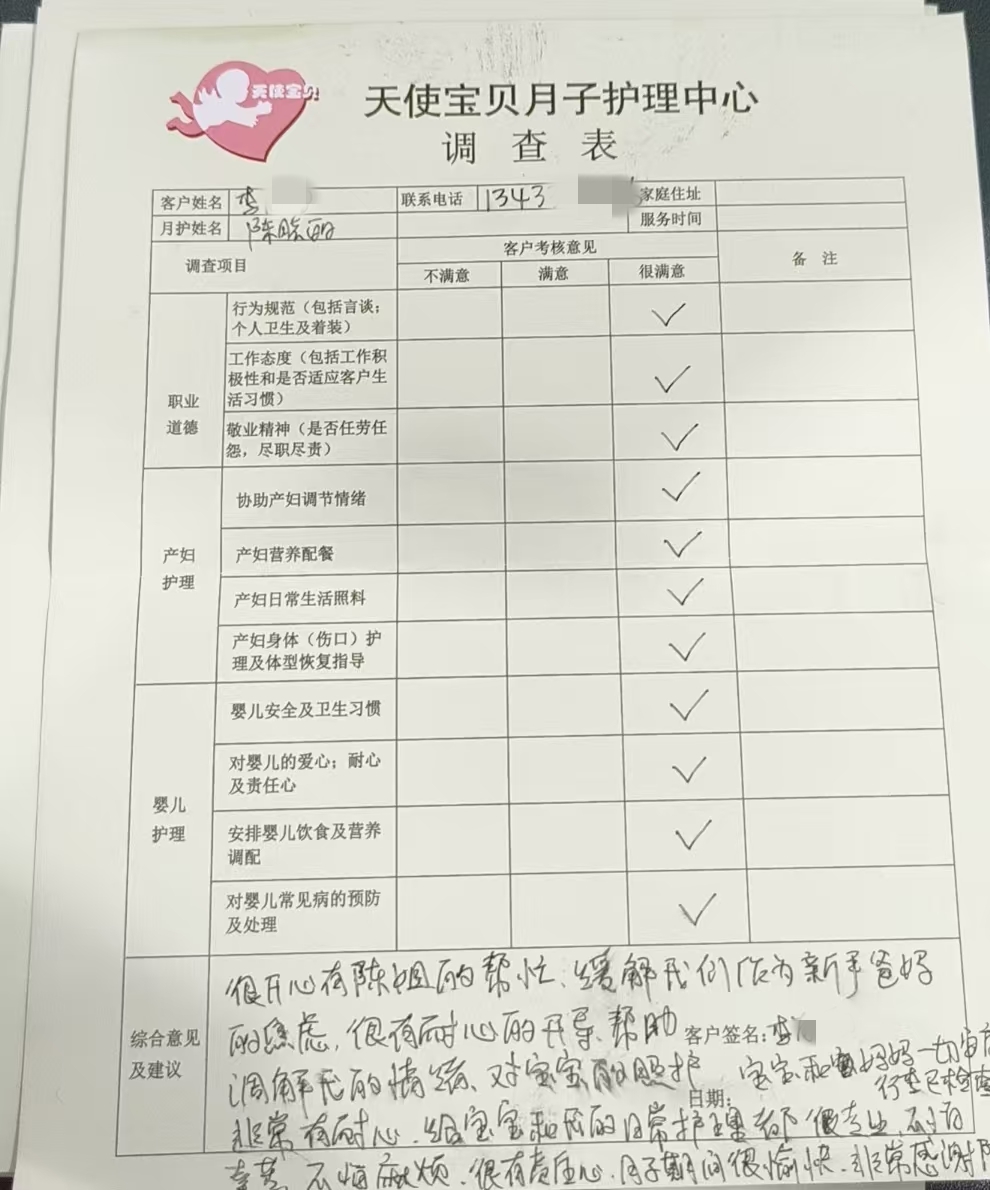 天使宝贝
天使宝贝月子护理中心
调查表
客户姓名 李 联系电话 1343 家庭住址
月护姓名 陈 丽 服务时间
调查项目 客户考核意见 备注
不满意 满意 很满意
职业道德
行为规范(包括言谈;
个人卫生及着装)
工作态度(包括工作积
极性和是否适应客户生
活习惯)
敬业精神(是否任劳任
怨,尽职尽责)
产妇护理
协助产妇调节情绪
产妇营养配餐
产妇日常生活照料
产妇身体(伤口)护
理及体型恢复指导
婴儿护理
婴儿安全及卫生习惯
对婴儿的爱心;耐心
及责任心
安排婴儿饮食及营养
调配
对婴儿常见病的预防
及处理
综合意见及建议
很开心有陈姐的帮忙、缓解我们作为新手爸妈
的焦虑,很有耐心的开导、帮助
客户签名:李
调解我的情绪、对宝宝的照护
宝宝和妈妈一切安
日期:
非常有耐心、给宝宝和我的日常护理都很专业、
不怕麻烦、很有责任心、月子期间很愉快、非常感谢